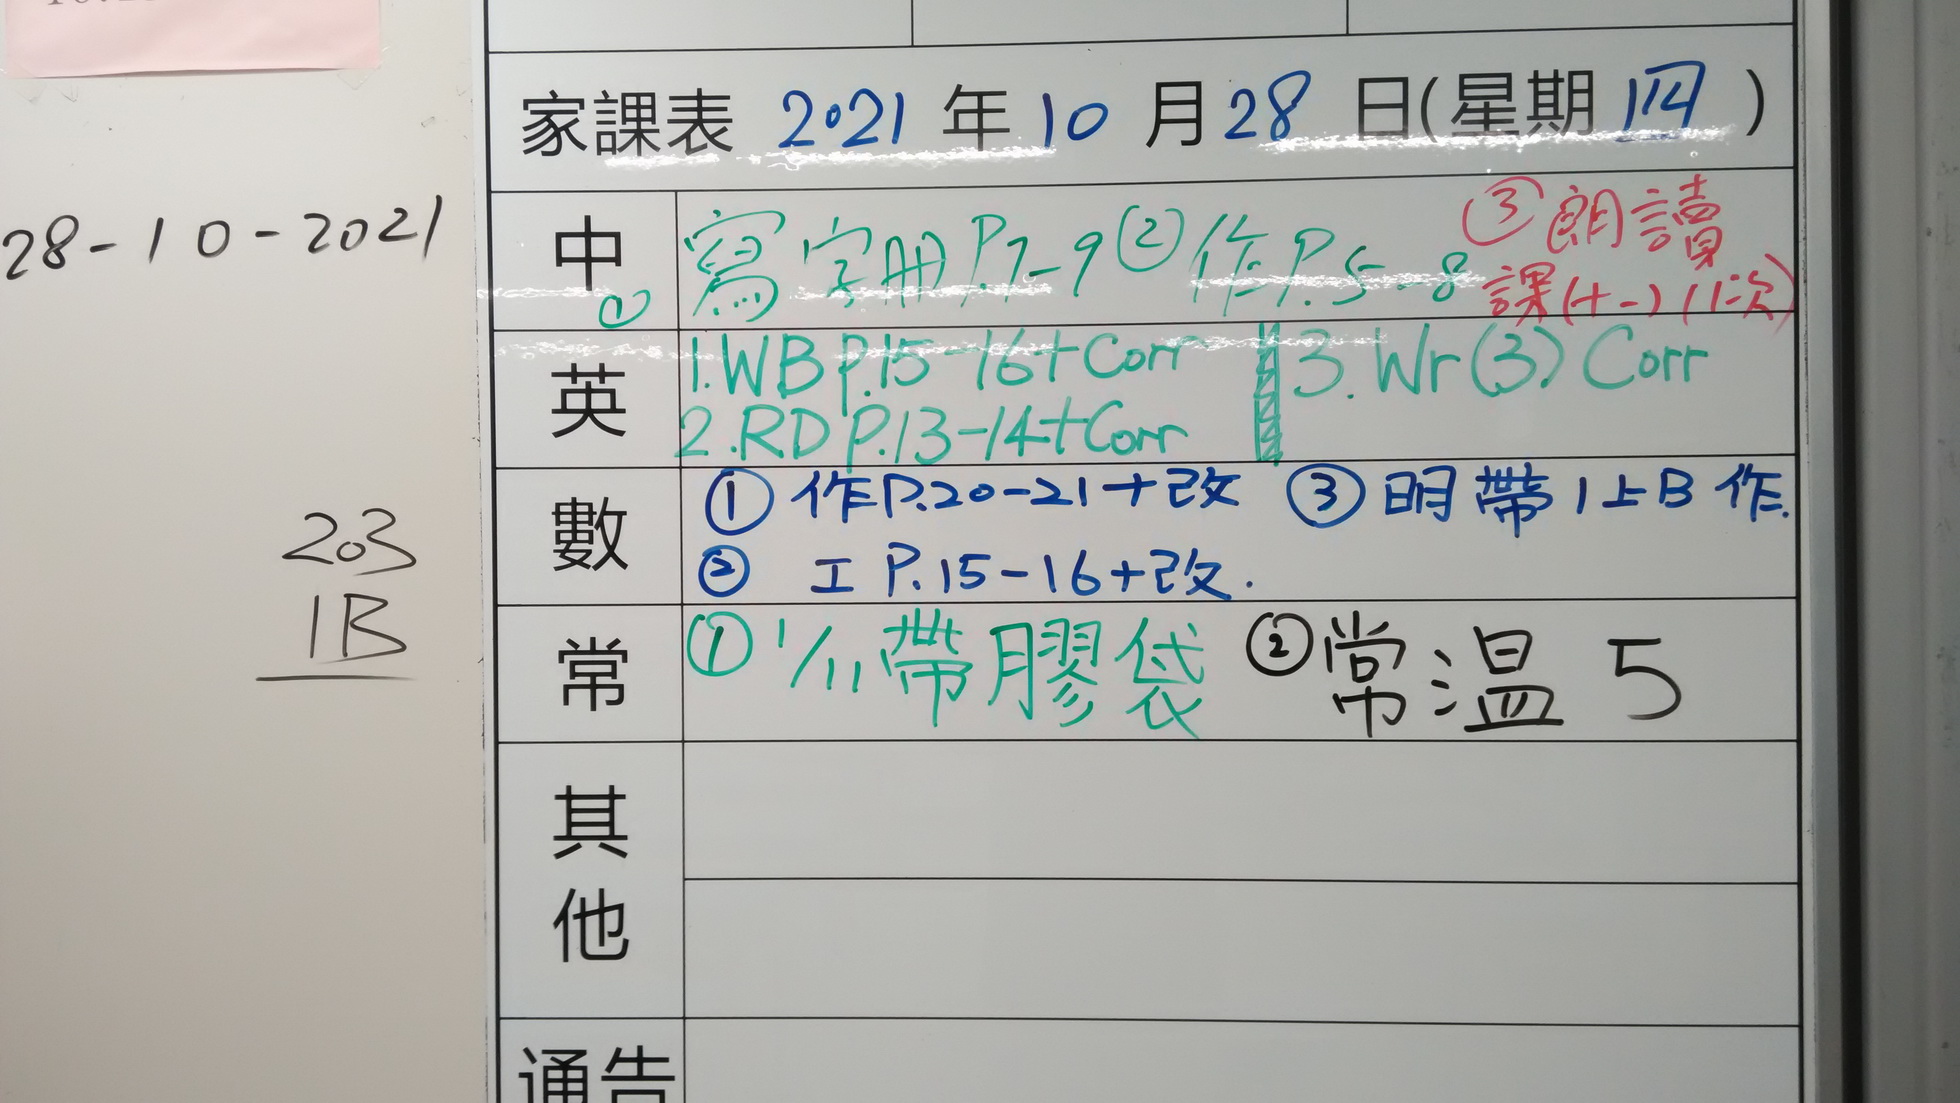 家課表 2021 年 10 月 28 日(星期 四 )
28-10-2021
203
1B
中 ① 寫字册 P.7-9 ② 作 P.5-8 ③ 朗讀
課(十一) (1次)
英 1. WB P.15-16+Corr 3. Wr(3) Corr
2. RD P.13-14+Corr
數 ① 作P.20-21+改 ③ 明帶1上B作.
② 工 P.15-16+改.
常 ① 1/11帶膠袋 ② 常温 5
其他
通告